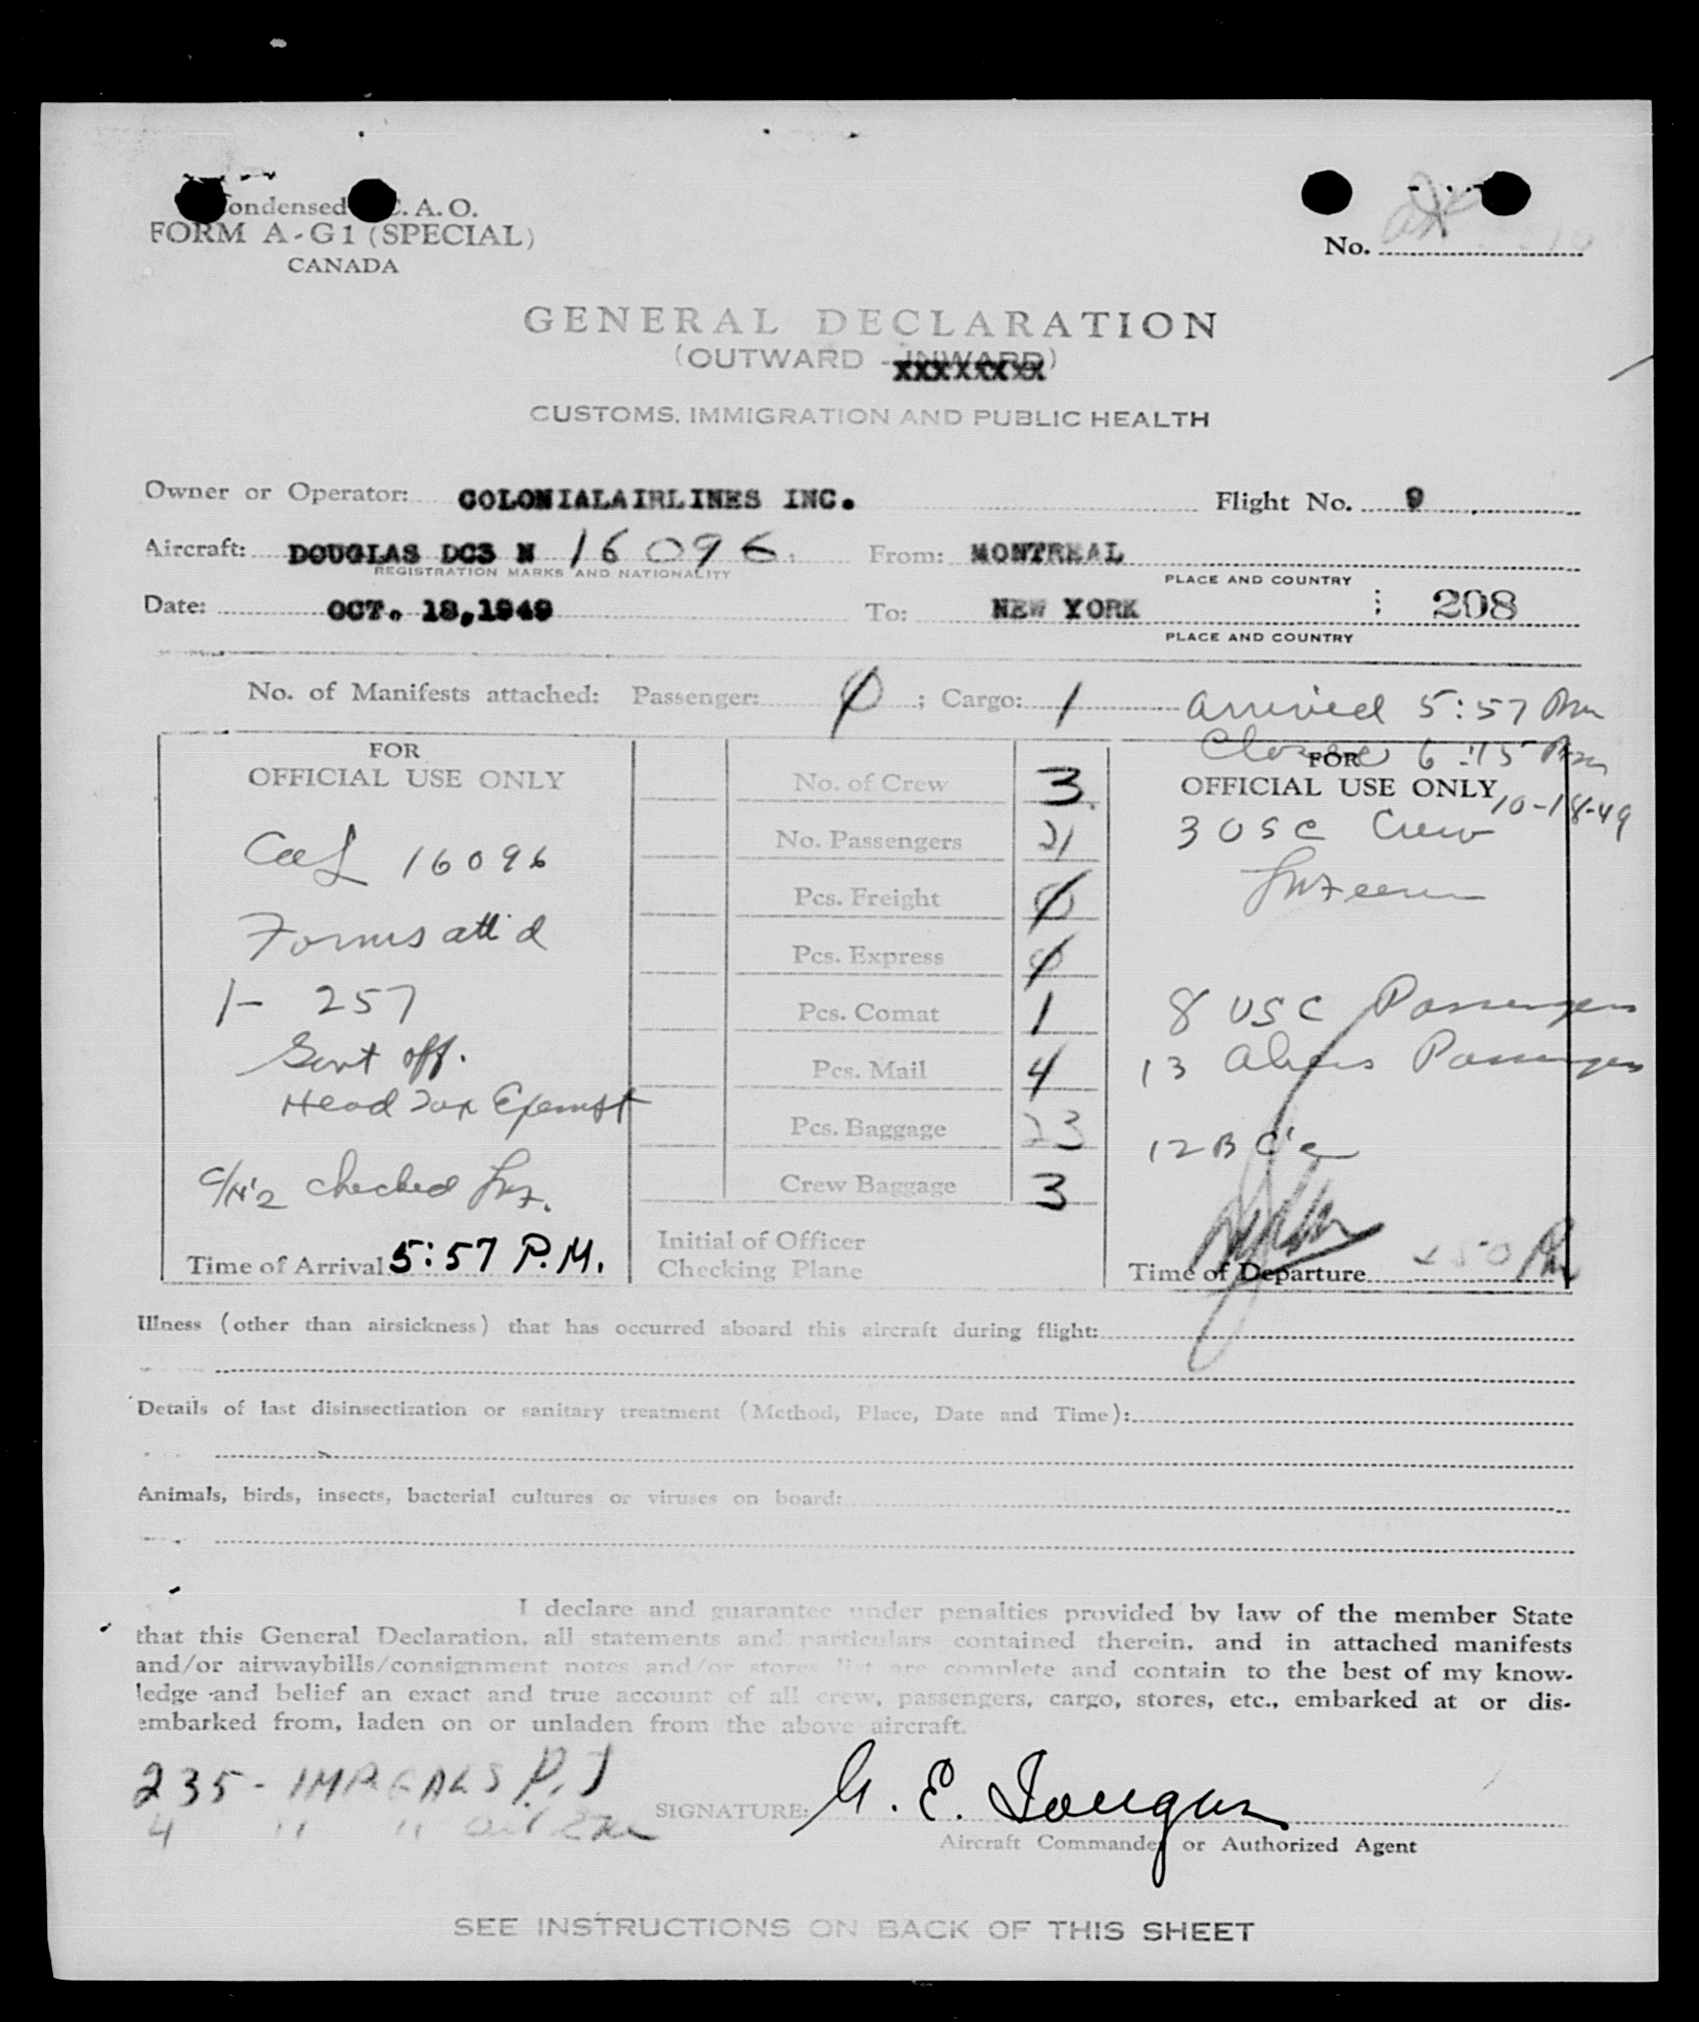 Condensed I.C.A.O.
FORM A-G1 (SPECIAL)
CANADA
No.
GENERAL DECLARATION
(OUTWARD - INWARD)
XXXXXXXX
CUSTOMS, IMMIGRATION AND PUBLIC HEALTH
Owner or Operator: COLONIALAIRLINES INC. Flight No. 9
Aircraft: DOUGLAS DC3 N 16096 From: MONTREAL
REGISTRATION MARKS AND NATIONALITY PLACE AND COUNTRY
Date: OCT. 18,1949 To: NEW YORK 208
PLACE AND COUNTRY
No. of Manifests attached: Passenger: 0 ; Cargo: 1 arrived 5:57 Pm
6:15 Pm
FOR
OFFICIAL USE ONLY
16096
Forms att'd
1- 257
Govt off.
Head Tax Exempt
checked
Time of Arrival 5:57 P.M.
No. of Crew 3
No. Passengers 21
Pcs. Freight 0
Pcs. Express 0
Pcs. Comat 1
Pcs. Mail 4
Pcs. Baggage 23
Crew Baggage 3
Initial of Officer
Checking Plane
FOR
OFFICIAL USE ONLY
10-18-49
3 USC Crew
8 USC Passengers
13 Aliens Passengers
12 B C's
Time of Departure
Illness (other than airsickness) that has occurred aboard this aircraft during flight:
Details of last disinsectization or sanitary treatment (Method, Place, Date and Time):
Animals, birds, insects, bacterial cultures or viruses on board:
I declare and guarantee under penalties provided by law of the member State
that this General Declaration, all statements and particulars contained therein, and in attached manifests
and/or airwaybills/consignment notes and/or stores list are complete and contain to the best of my know-
ledge and belief an exact and true account of all crew, passengers, cargo, stores, etc., embarked at or dis-
embarked from, laden on or unladen from the above aircraft.
235 -
4 " "
SIGNATURE: G. E.
Aircraft Commander or Authorized Agent
SEE INSTRUCTIONS ON BACK OF THIS SHEET